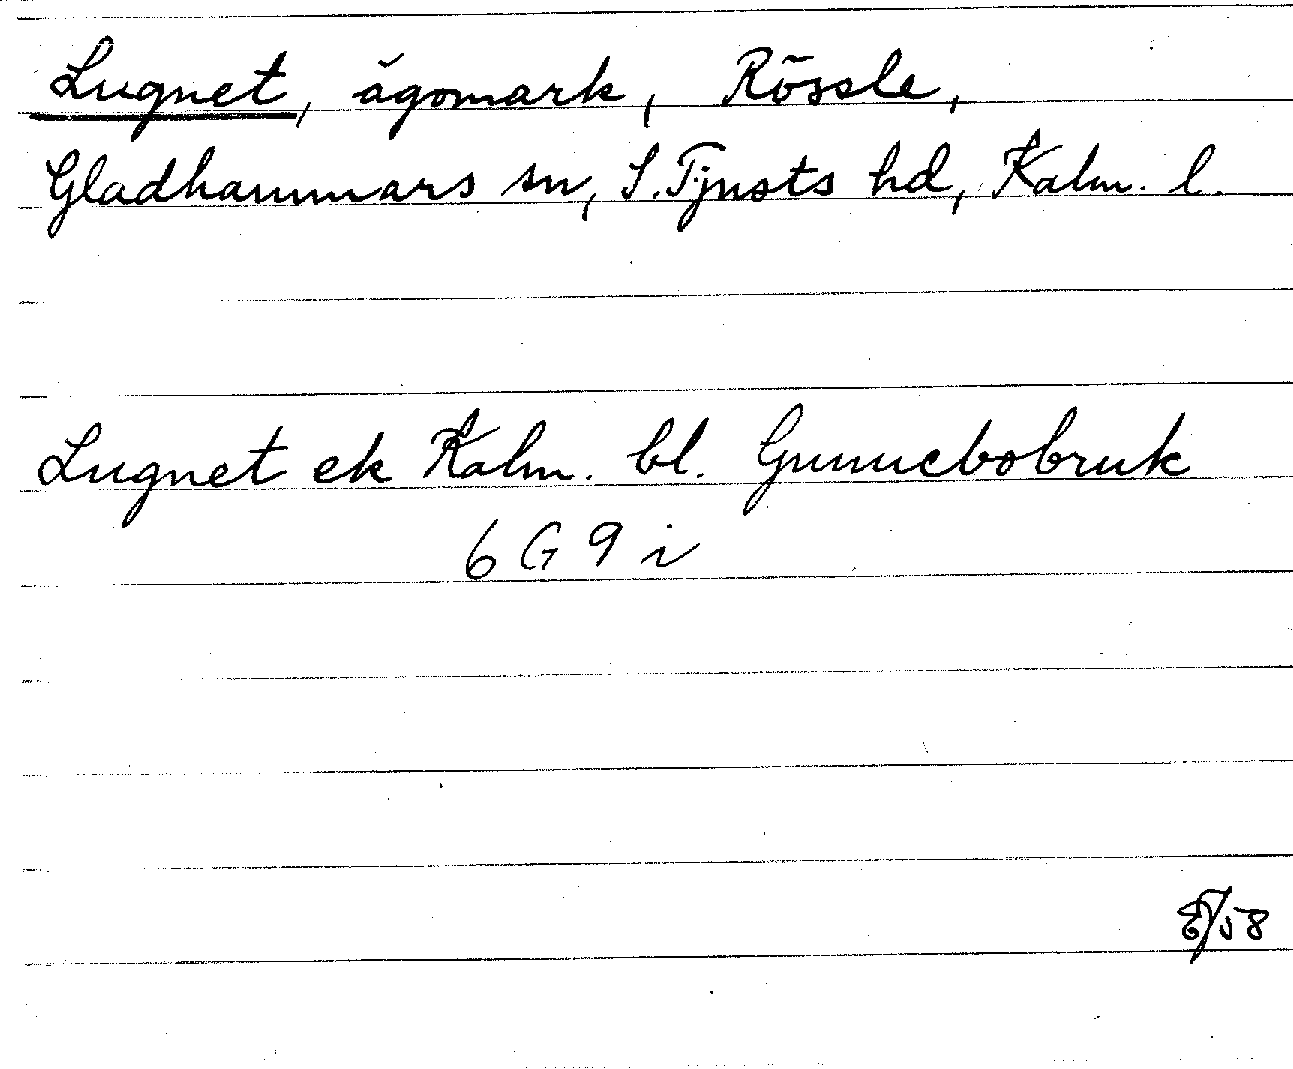 Lugnet, ägomark, Rössle,
Gladhammars sn, S. Tjusts hd, Kalm. l.
Lugnet ek Kalm. bl. Gunnebobruk
6 G 9 i
/58